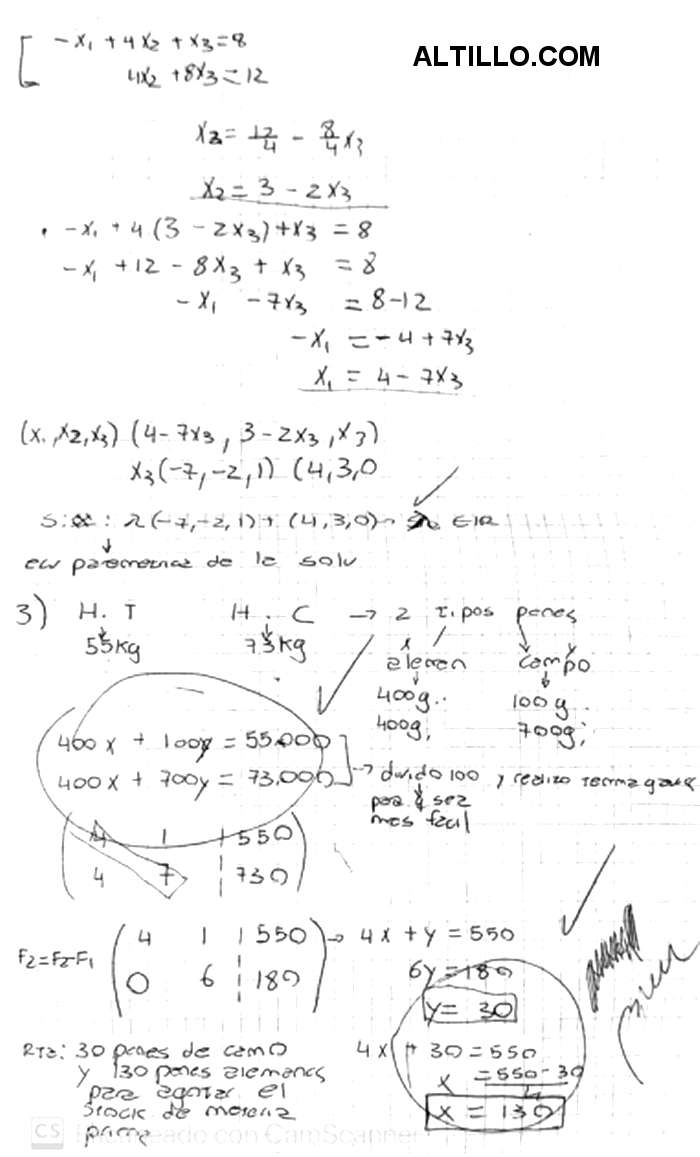 ALTILLO.COM
-x₁ + 4x₂ + x₃ = 8
4x₂ + 8x₃ = 12
x₂ = 12/4 - 8/4 x₃
x₂ = 3 - 2x₃
-x₁ + 4(3 - 2x₃) + x₃ = 8
-x₁ + 12 - 8x₃ + x₃ = 8
-x₁ - 7x₃ = 8-12
-x₁ = -4 + 7x₃
x₁ = 4 - 7x₃
(x₁, x₂, x₃) (4-7x₃, 3-2x₃, x₃)
x₃(-7, -2, 1) (4, 3, 0
λ(-7, -2, 1) + (4, 3, 0) ∈ IR
de la solu
3) H. T H. C → 2 tipos panes
55kg 73kg x y
aleman campo
400g. 100g.
400g, 700g;
400x + 100y = 55.000
400x + 700y = 73.000 → divido 100 y realizo
para q sea
mas facil
4 1 | 550
4 7 | 730
F2=F2-F1 4 1 | 550 → 4x + y = 550
0 6 | 180 6y = 180
y = 30
4x + 30 = 550
x = 550-30
4
x = 130
Rta: 30 panes de camo
y 130 panes alemanes
para agotar el
stock de materia
prima
CS Escaneado con CamScanner